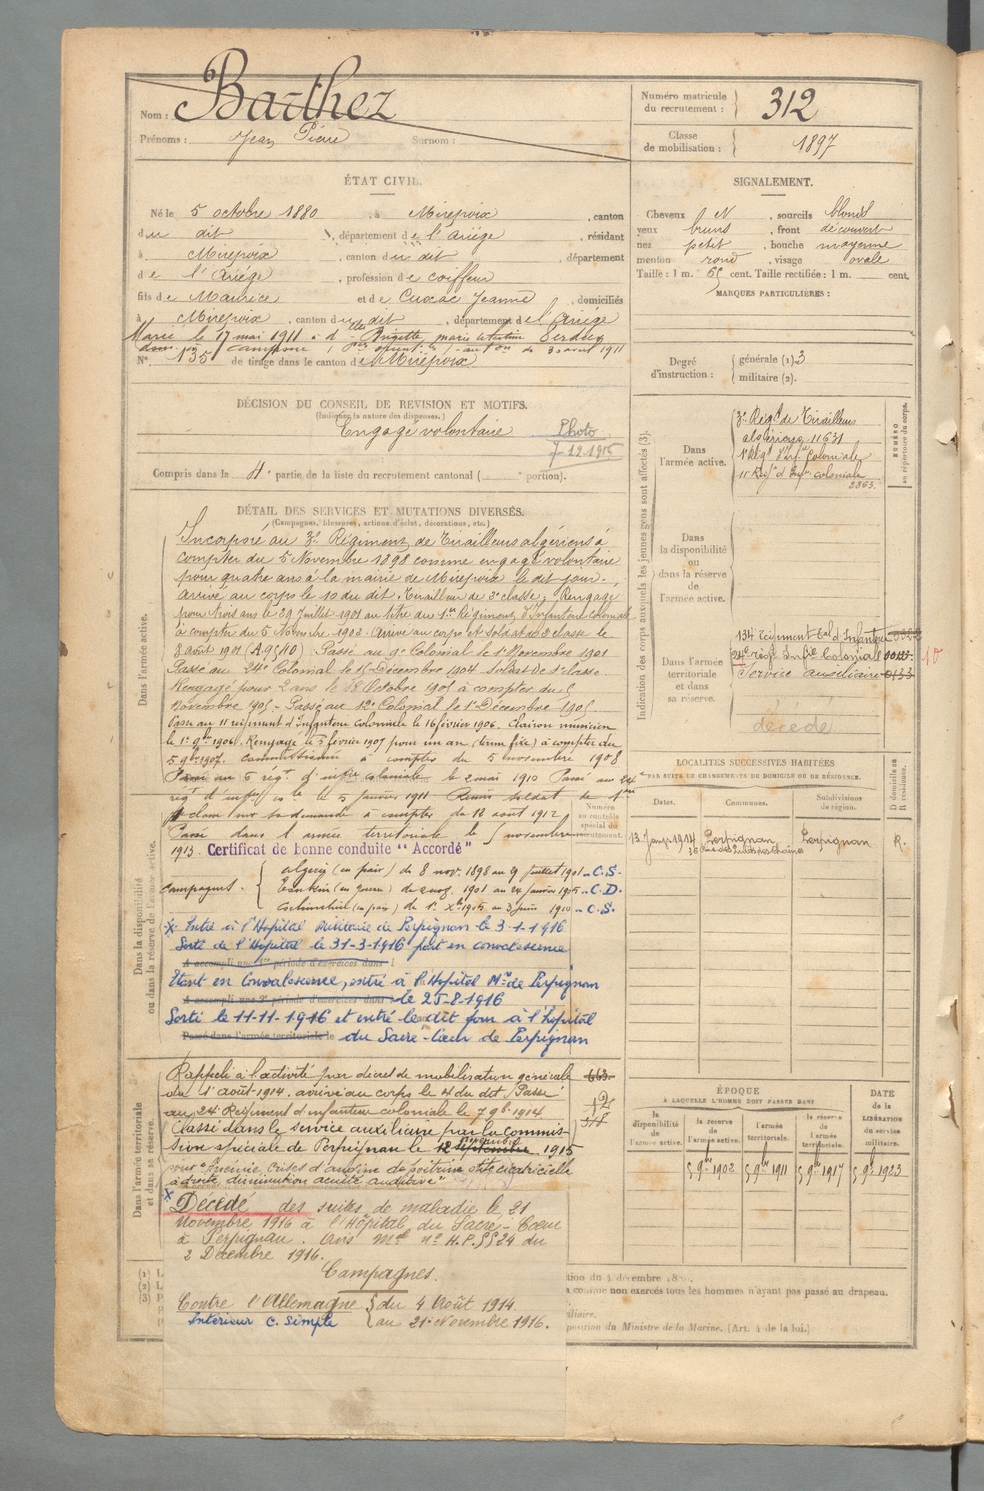 Nom : Barthez
Prénoms : Jean Pierre Surnom :
Numéro matricule du recrutement : 312
Classe de mobilisation : 1897
ÉTAT CIVIL.
Né le 5 octobre 1880, à Mirepoix, canton
du dit, département de l'Ariége, résidant
à Mirepoix, canton du dit, département
de l'Ariége, profession de coiffeur
fils de Maurice et de Cuxac Jeanne, domiciliés
à Mirepoix, canton du dit, département de l'Ariége
Marié le 17 mai 1911 à d^elle Brigitte marie
N° 135 de tirage dans le canton de Mirepoix
SIGNALEMENT.
Cheveux N, sourcils blonds
yeux bruns, front découvert
nez petit, bouche moyenne
menton rond, visage ovale
Taille : 1 m. 65 cent. Taille rectifiée : 1 m. cent.
MARQUES PARTICULIÈRES :
Degré d'instruction : générale (1) 3
militaire (2).
DÉCISION DU CONSEIL DE REVISION ET MOTIFS.
(Indiquer la nature des dispenses.)
Engagé volontaire
Photo
7-12-1915
Compris dans la 4e partie de la liste du recrutement cantonal ( portion).
DÉTAIL DES SERVICES ET MUTATIONS DIVERSES.
(Campagnes, blessures, actions d'éclat, décorations, etc.)
Dans l'armée active.
Incorporé au 3e Régiment de Tirailleurs algériens à
compter du 5 Novembre 1898 comme engagé volontaire
pour quatre ans à la mairie de Mirepoix le dit jour.
arrivé au corps le 10 du dit. Tirailleur de 2e classe. Rengagé
pour trois ans le 29 Juillet 1901 au titre du 1er Régiment d'Infanterie coloniale
à compter du 5 Novembre 1902. Arrivé au corps et soldat de 2e classe le
8 août 1901 Passé au 9e Colonial le 1er Novembre 1901
Passé au 24e Colonial le 15 Décembre 1904. Soldat de 1e classe.
Rengagé pour 2 ans le Octobre 1905 à compter du 5
Novembre 1905 - Passé au 12e Colonial le 1er Décembre 1905
Passé au 11 régiment d'Infanterie coloniale le 16 février 1906. Clairon musicien
le 1er 9bre 1906. Rengagé le 5 février 1907 pour un an à compter du
5 9bre 1907. Commissionné à compter du 5 novembre 1908
Passé au 6 régt d'infrie coloniale le 2 mai 1910 Passé au 24e
régt d'infie cole le 5 Janvier 1911 Remis soldat de
classe sur sa demande à compter du 12 août 1912
Passé dans l'armée territoriale le 5 novembre
1913. Certificat de bonne conduite "Accordé"
Numéro au contrôle spécial du recrutement.
Campagnes. Algérie (en paix) du 8 nov. 1898 au 9 juillet 1901 - C.S.
Tonkin (en guerre) du 1901 au 24 Janvier 1905 - C.D.
Cochinchine (en paix) du 1er Xbre 1905 au 3 juin 1910 - C.S.
Dans la disponibilité ou dans la réserve de l'armée active.
x Entré à l'Hopital militaire de Perpignan le 3-1-1916
Sorti de l'Hôpital le 31-3-1916 part en convalescence
A accompli une 1re période d'exercices dans
Etant en Convalescence, entré à l'Hopital Mre de Perpignan
A accompli une 2e période d'exercices dans le 25-8-1916
Sorti le 11-11-1916 et entré le dit jour à l'hôpital
Passé dans l'armée territoriale le du Sacré-Cœur de Perpignan
Dans l'armée territoriale et dans sa réserve.
Rappelé à l'activité par décret de mobilisation générale
du 1er août 1914. arrivé au corps le 4 du dit. Passé
au 24e Régiment d'infanterie coloniale le 7 9bre 1914
Classé dans le service auxiliaire par la commis-
sion spéciale de Perpignan le 12 1915
pour "Anémie, crises d'angine de poitrine otite cicatricielle
à droite, diminution acuité auditive"
x Décédé des suites de maladie le 21
Novembre 1916 à l'Hôpital du Sacré-Cœur
à Perpignan. Avis Mel n° H.P. 5524 du
2 Décembre 1916.
Campagnes.
Contre l'Allemagne du 4 Août 1914.
Intérieur C. Simple au 21 Novembre 1916.
Indication des corps auxquels les jeunes gens sont affectés (3).
NUMÉRO au répertoire du corps.
Dans l'armée active.
3e Régt de Tirailleurs
algériens 11631
1er Régt d'Infie Coloniale
11 Régt d'Infie coloniale
2363
Dans la disponibilité ou dans la réserve de l'armée active.
Dans l'armée territoriale et dans sa réserve.
134 régiment tal d'Infanterie
24e régt Infie Colonial
Service auxiliaire
décédé
LOCALITÉS SUCCESSIVES HABITÉES
PAR SUITE DE CHANGEMENTS DE DOMICILE OU DE RÉSIDENCE.
Dates. Communes. Subdivisions de région. D domicile ou R résidence.
13 Janv. 1914 Perpignan Perpignan R.
ÉPOQUE
A LAQUELLE L'HOMME DOIT PASSER DANS
DATE de la LIBÉRATION du service militaire.
la disponibilité de l'armée active.
la réserve de l'armée active.
l'armée territoriale.
la réserve de l'armée territoriale.
5 9bre 1902 5 9bre 1911 5 9bre 1917 5 9bre 1923
comme non exercés tous les hommes n'ayant pas passé au drapeau.
position du Ministre de la Marine. (Art. 4 de la loi.)